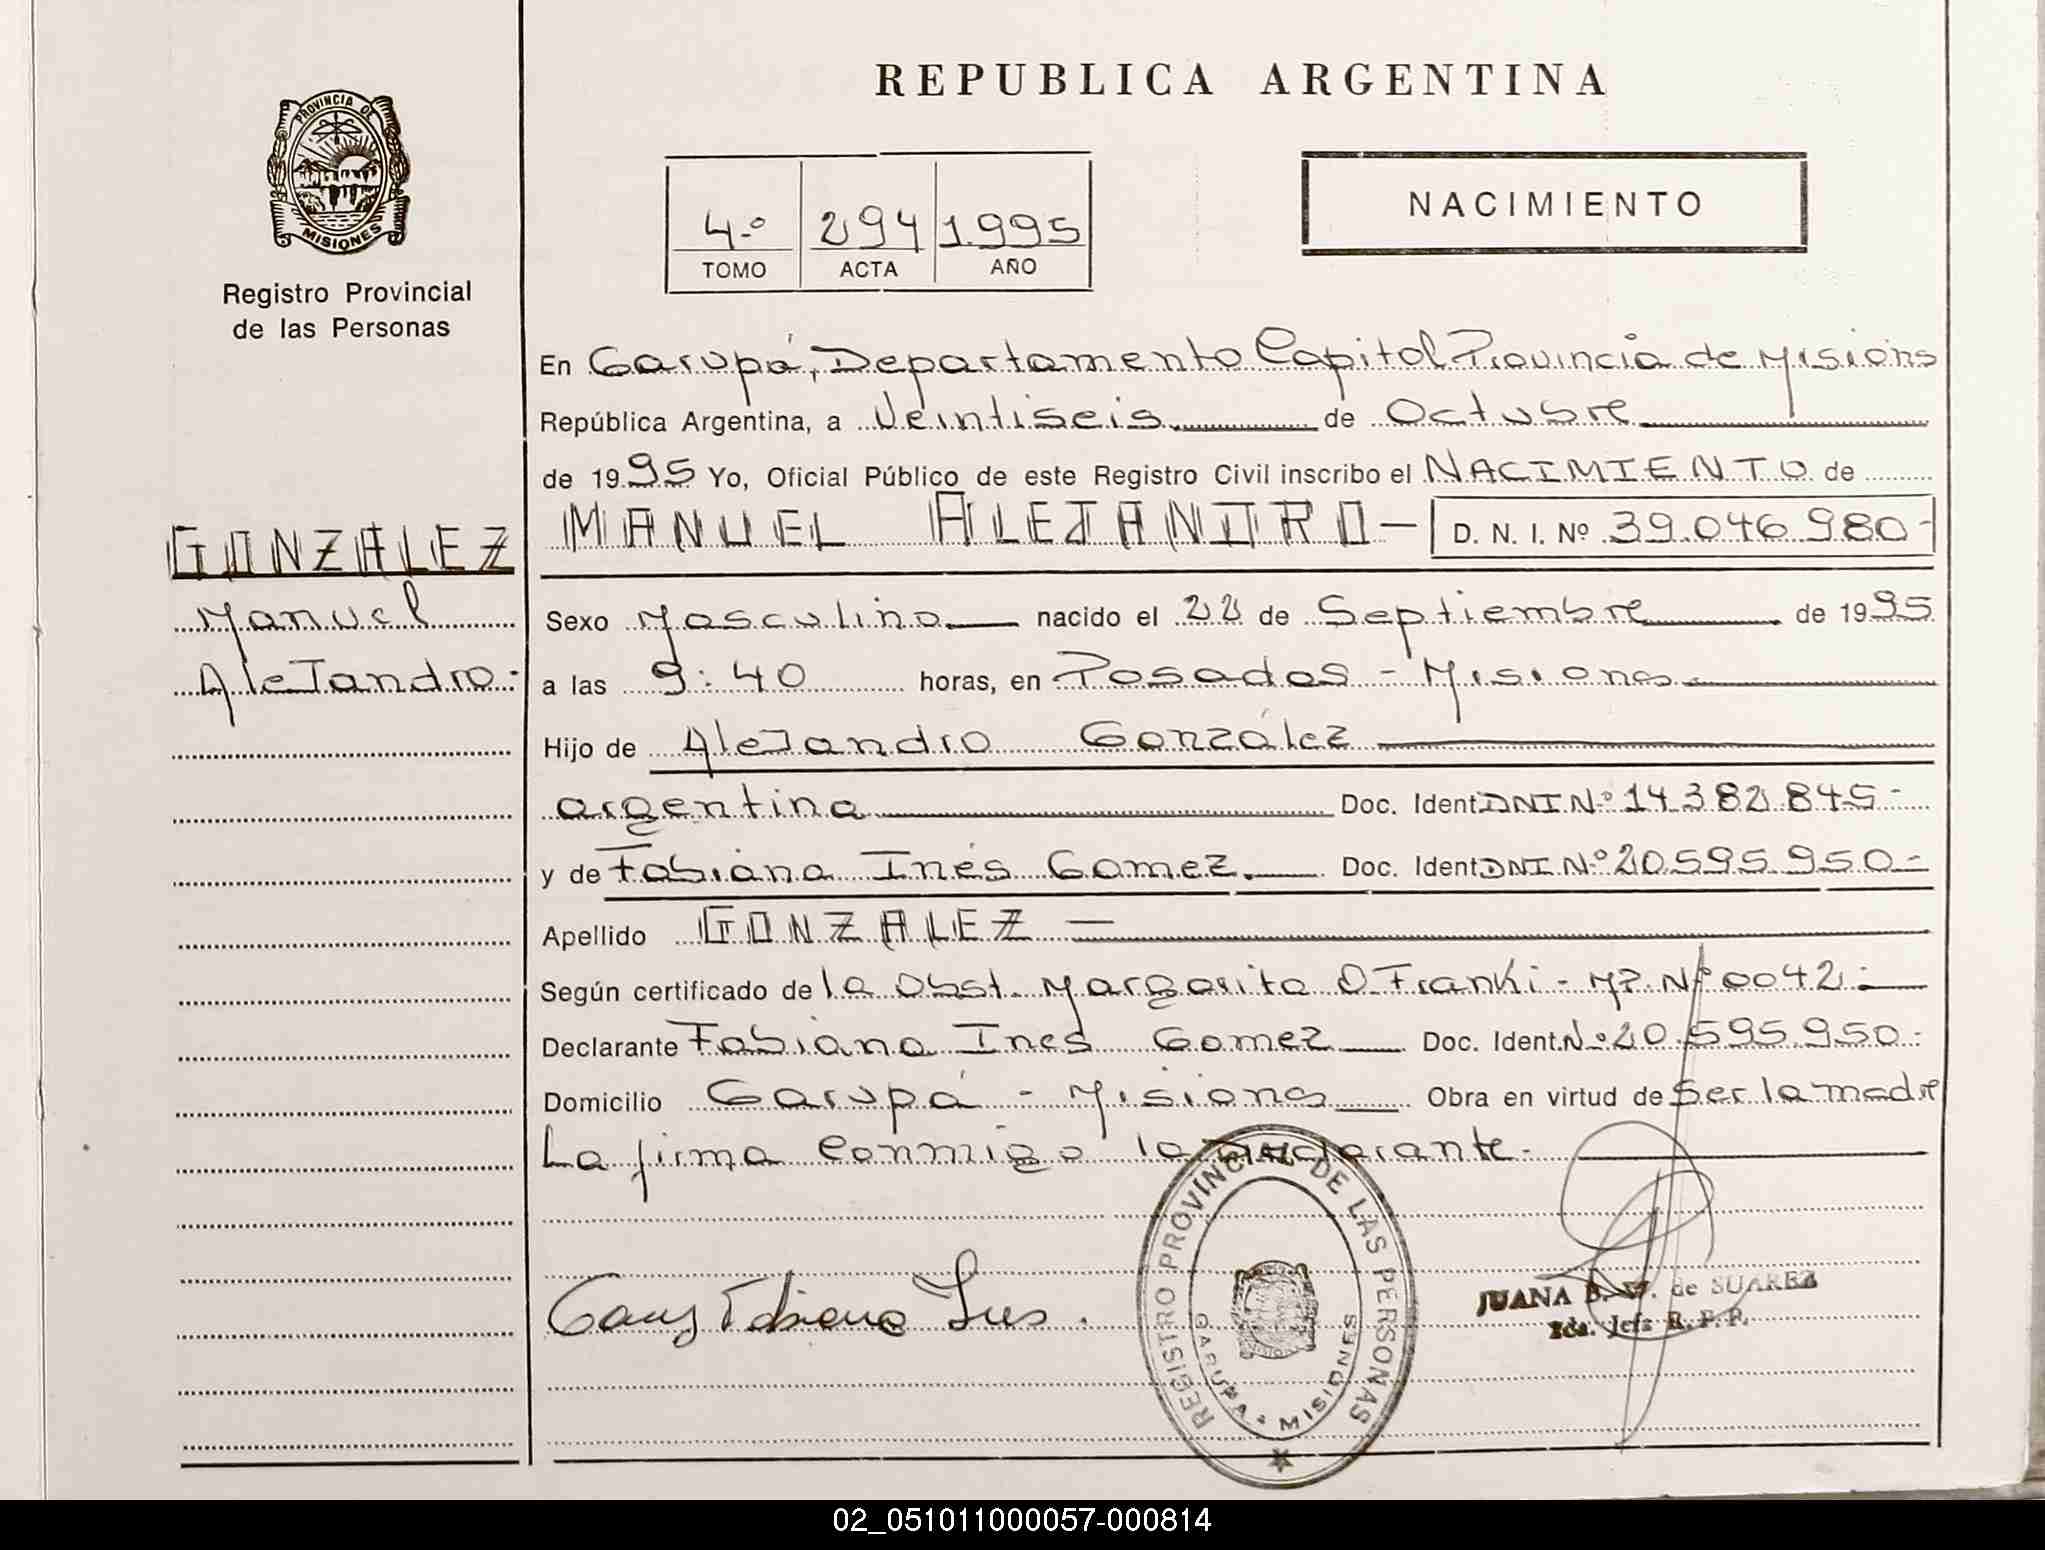 PROVINCIA DE
MISIONES
Registro Provincial
de las Personas
REPUBLICA ARGENTINA
NACIMIENTO
4º 294 1995
TOMO ACTA AÑO
En Garupá, Departamento Capital Provincia de Misions
República Argentina, a Veintiseis de Octubre
de 1995 Yo, Oficial Público de este Registro Civil inscribo el NACIMIENTO de
GONZALEZ
Manuel
AleJandro.
MANUEL ALEJANDRO — D. N. I. Nº 39.046.980-
Sexo Masculino nacido el 22 de Septiembre de 1995
a las 9:40 horas, en Posadas - Misiones
Hijo de AleJandro González
argentina Doc. Ident. DNI Nº 14.382.845-
y de Fabiana Inés Gomez. Doc. Ident. DNI Nº 20.595.950-
Apellido GONZALEZ —
Según certificado de la Obst. Margarita O. Franki - MP. Nº 0042.-
Declarante Fabiana Ines Gomez Doc. Ident. Nº 20.595.950.-
Domicilio Garupá - Misiones Obra en virtud de Ser la madre
La firma conmigo la Declarante.
REGISTRO PROVINCIAL DE LAS PERSONAS
GARUPA - MISIONES
JUANA de SUAREZ
2da. Jefa R. P. P.
02_051011000057-000814